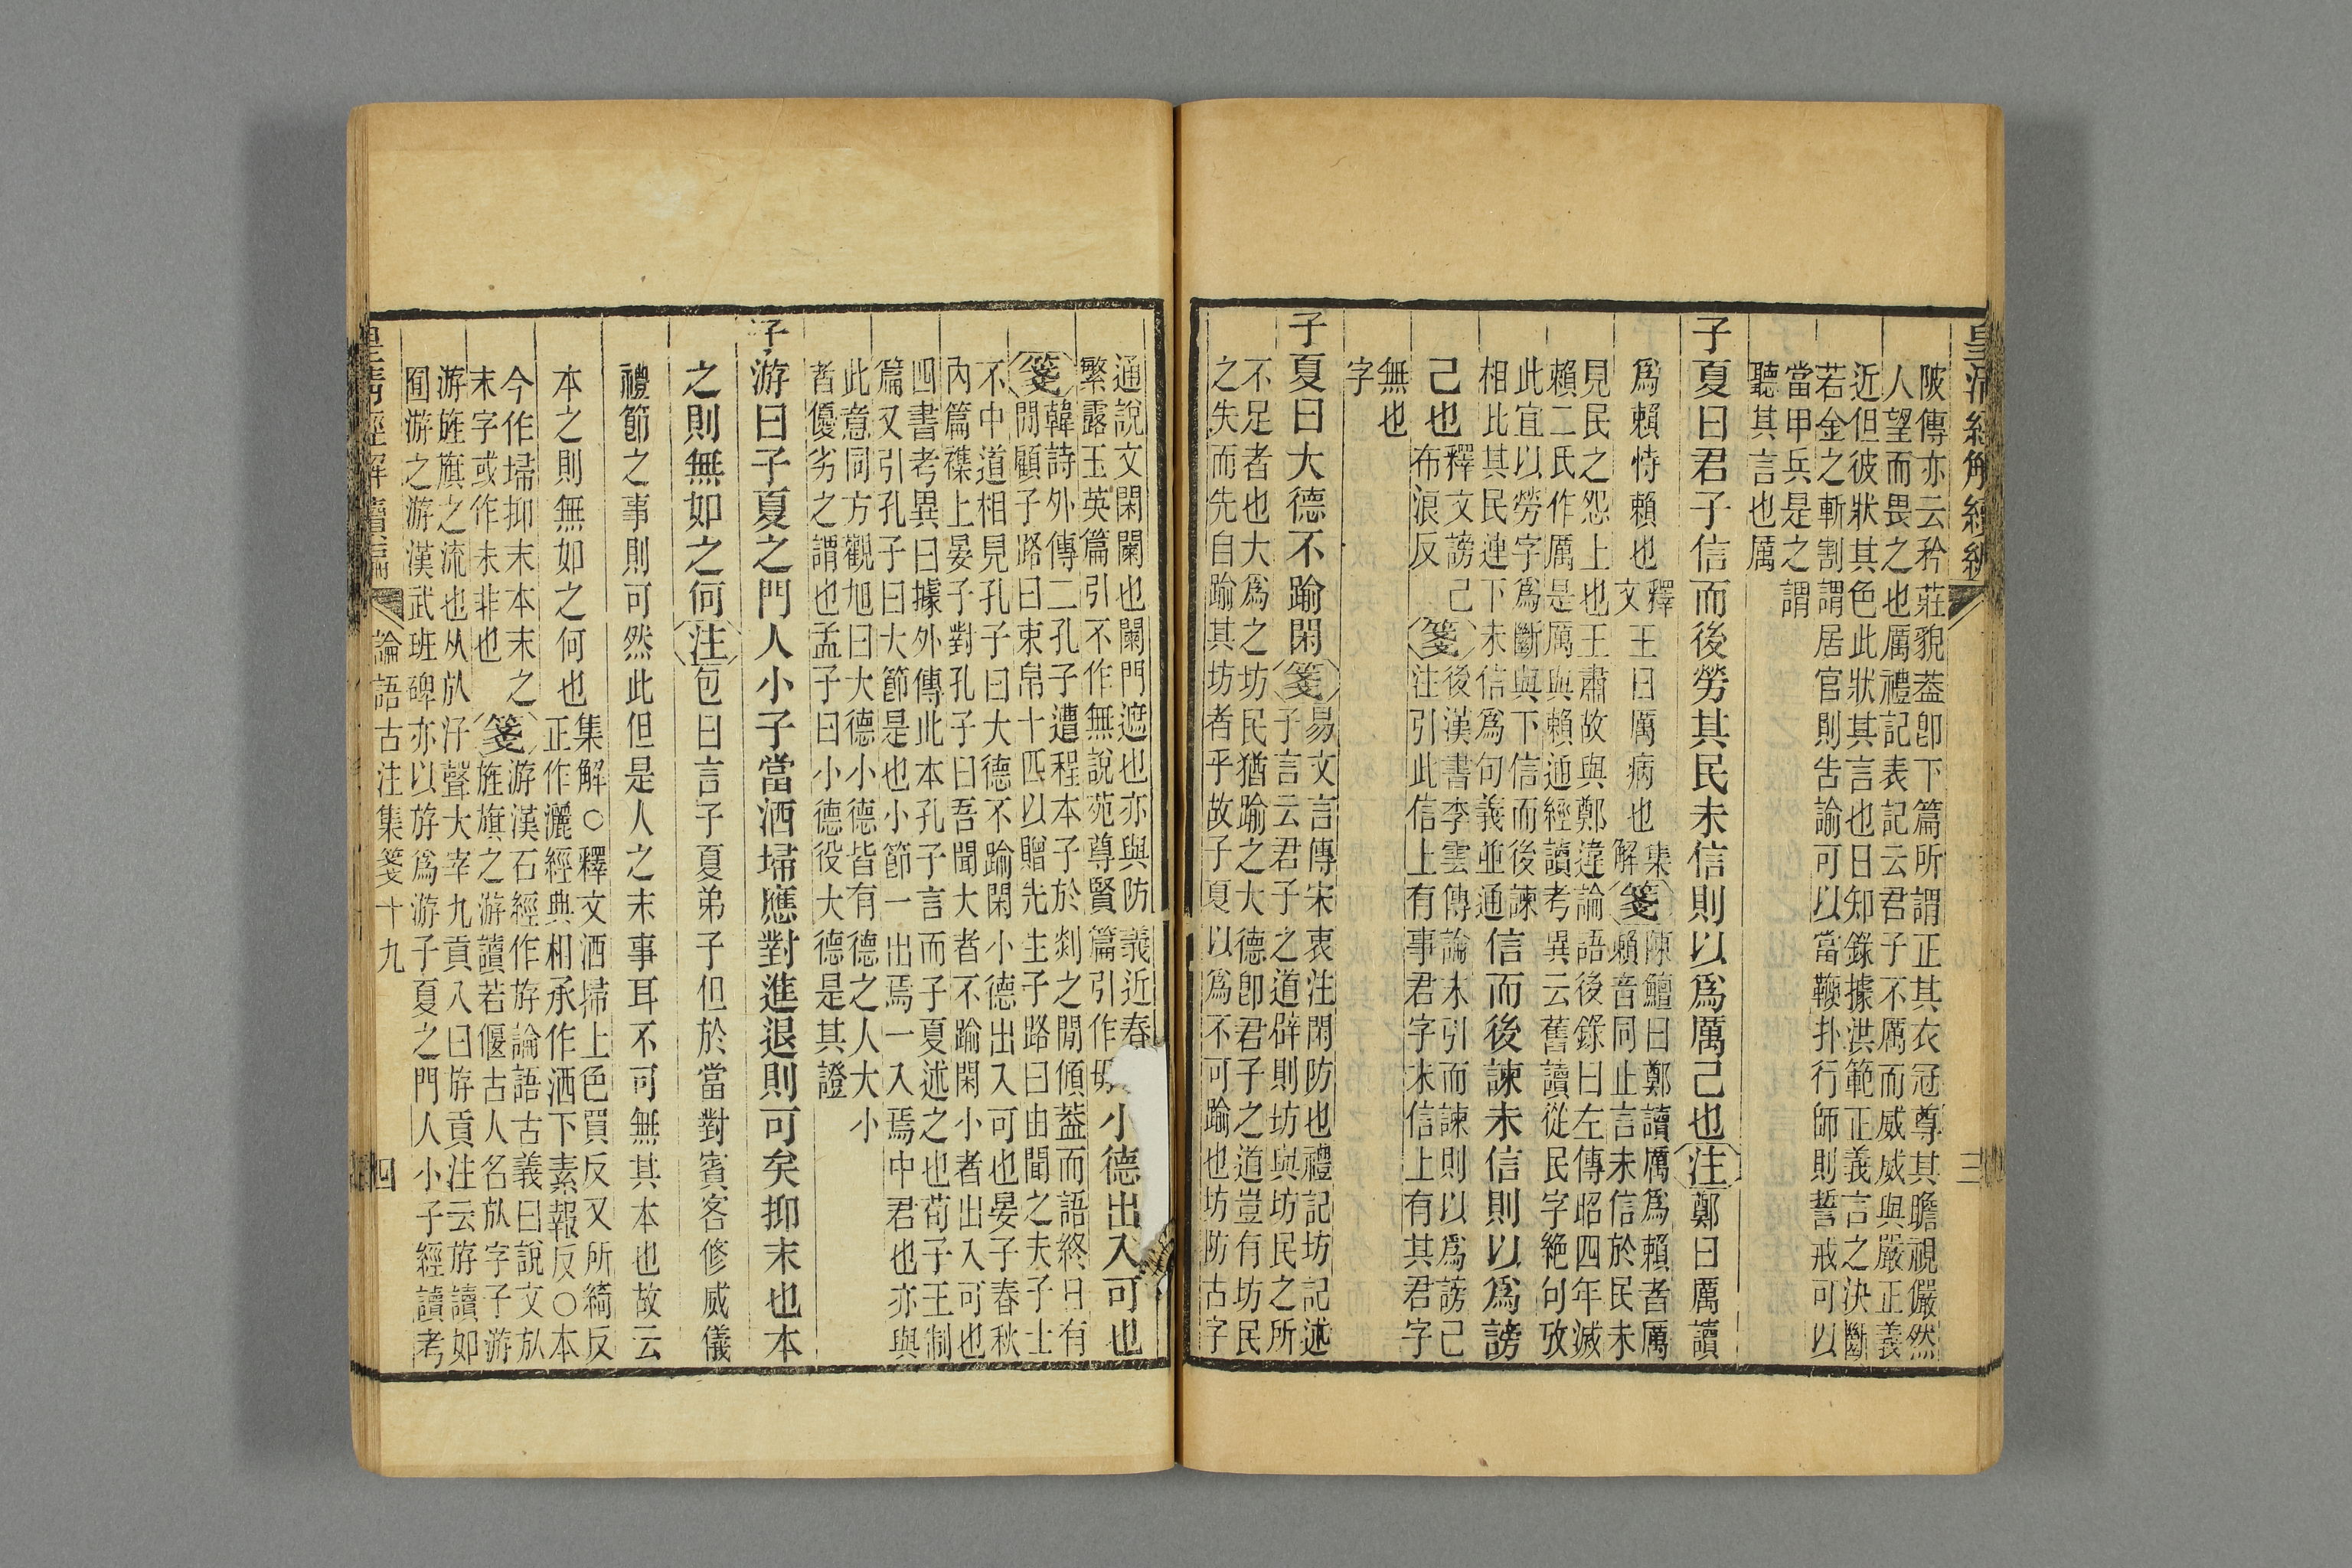 皇清經解續編
三
陂傳亦云矜莊貌葢卽下篇所謂正其衣冠尊其瞻視儼然
人望而畏之也厲禮記表記云君子不厲而威威與嚴正義
近但彼狀其色此狀其言也日知錄據洪範正義言之決斷
若金之斬割謂居官則告諭可以當鞭扑行師則誓戒可以
當甲兵是之謂
聽其言也厲
子夏曰君子信而後勞其民未信則以爲厲己也注鄭曰厲讀
爲賴恃賴也釋文王曰厲病也集解箋陳鱣曰鄭讀厲爲賴者厲
賴音同止言未信於民未
見民之怨上也王肅故與鄭違論語後錄曰左傳昭四年滅
賴二氏作厲是厲與賴通經讀考異云舊讀從民字絶句攷
此宜以勞字爲斷與下信而後諫
相比其民連下未信爲句義並通信而後諫未信則以爲謗
己也釋文謗己
布浪反箋後漢書李雲傳論未引而諫則以爲謗己
注引此信上有事君字未信上有其君字
無也
字
子夏曰大德不踰閑箋易文言傳宋衷注閑防也禮記坊記述
子言云君子之道辟則坊與坊民之所
不足者也大爲之坊民猶踰之大德卽君子之道豈有坊民
之失而先自踰其坊者乎故子夏以爲不可踰也坊防古字
通說文閑闌也闌門遮也亦與防義近春
繁露玉英篇引不作無說苑尊賢篇引作毋小德出入可也
箋韓詩外傳二孔子遭程本子於剡之閒傾葢而語終日有
閒顧子路曰束帛十匹以贈先生子路曰由聞之夫子士
不中道相見孔子曰大德不踰閑小德出入可也晏子春秋
內篇襍上晏子對孔子曰吾聞大者不踰閑小者出入可也
四書考異曰據外傳此本孔子言而子夏述之也荀子王制
篇又引孔子曰大節是也小節一出焉一入焉中君也亦與
此意同方觀旭曰大德小德皆有德之人大小
者優劣之謂也孟子曰小德役大德是其證
子游曰子夏之門人小子當洒埽應對進退則可矣抑末也本
之則無如之何注包曰言子夏弟子但於當對賓客修威儀
禮節之事則可然此但是人之末事耳不可無其本也故云
本之則無如之何也集解○釋文洒掃上色買反又所綺反
正作灑經典相承作洒下素報反○本
今作埽抑末本末之
末字或作未非也箋游漢石經作斿論語古義曰說文㫃
旌旗之游讀若偃古人名㫃字子游
游旌旗之流也从㫃汓聲大宰九貢八曰斿貢注云斿讀如
囿游之游漢武班碑亦以斿爲游子夏之門人小子經讀考
皇清經解續編
論語古注集箋十九
四